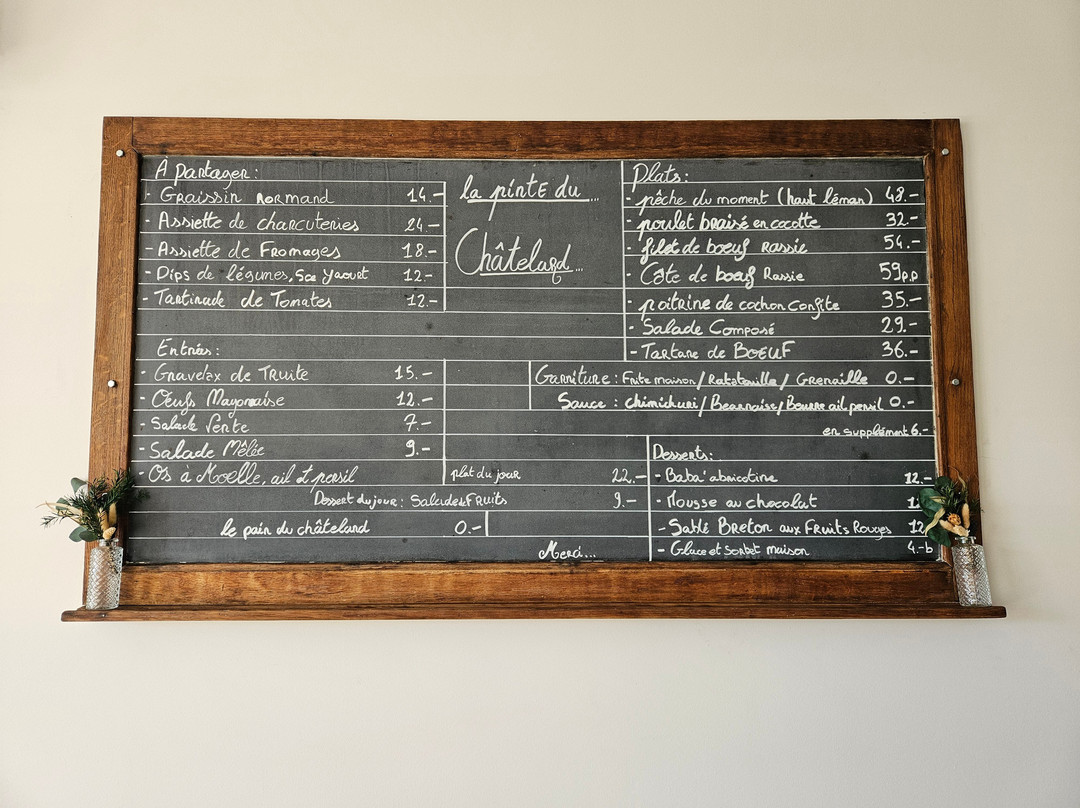 À partager :
- Graissin Normand 14.-
- Assiette de charcuteries 24.-
- Assiette de Fromages 18.-
- Dips de légumes, Sce Yaourt 12.-
- Tartinade de Tomates 12.-
la pinte du...
Châtelard...
Plats :
- pêche du moment (haut léman) 48.-
- poulet braisé en cocotte 32.-
- filet de boeuf Rassie 54.-
- Côte de boeuf Rassie 59p.p
- poitrine de cochon confite 35.-
- Salade Composé 29.-
- Tartare de BOEUF 36.-
Entrées :
- Gravelax de Truite 15.-
- Oeufs Mayonnaise 12.-
- Salade Verte 7.-
- Salade Mêlée 9.-
- Os à Moelle, ail et persil
Garniture : Frite maison / Ratatouille / Grenaille 0.-
Sauce : chimichuri / Bearnaise / Beurre ail persil 0.-
en supplément 6.-
plat du jour 22.-
Dessert du jour : Salade de Fruits 9.-
le pain du châteland 0.-
Merci...
Desserts :
- Baba abricotine 12.-
- Mousse au chocolat
- Sablé Breton aux Fruits Rouges 12
- Glace et sorbet maison 4.-b